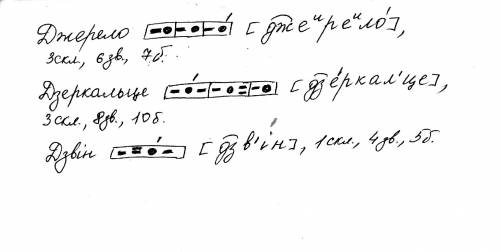 Джерело [– • – • – •́] [д͡жеиреило́],
3скл., 6зв., 7б.
Дзеркальце [– •́ – – • = – •] [д͡зе́ркал'це],
3скл., 8зв., 10б.
Дзвін [– = •́ –] [д͡зв'ін], 1скл., 4зв., 5б.